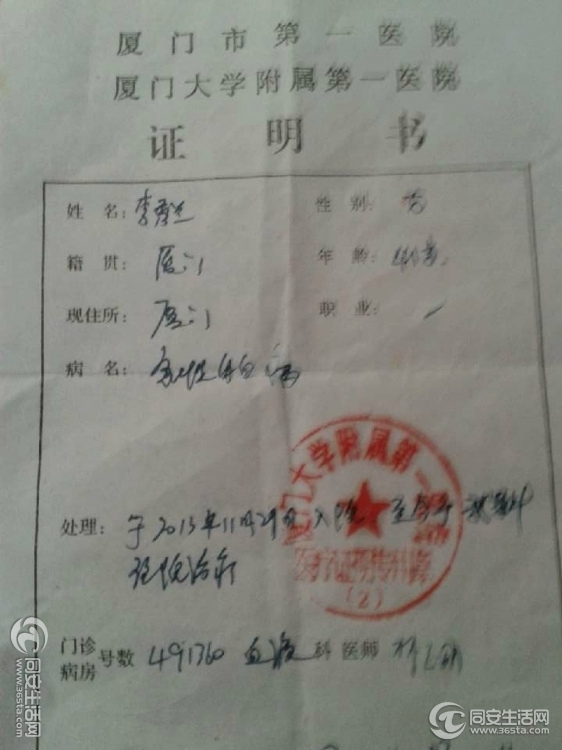 厦门市第一医院
厦门大学附属第一医院
证明书
姓名: 李 性别:
籍贯: 厦门 年龄:
现住所: 厦门 职业: 一
病名: 急性白血病
处理: 于2013年11月29日入院 至今于我科
住院治疗
厦门大学附属第一医院
(2)
门诊
病房 号数 491760 血液 科 医师
同安生活网
www.36sta.com
同安生活网
www.36sta.com